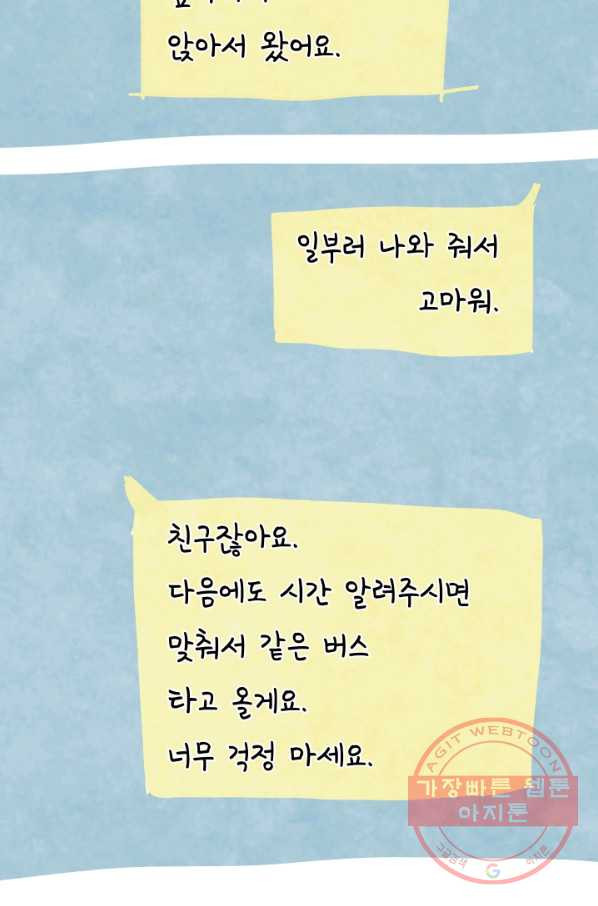 앉아서 왔어요.
일부러 나와 줘서
고마워.
친구잖아요.
다음에도 시간 알려주시면
맞춰서 같은 버스
타고 올게요.
너무 걱정 마세요.
AGIT WEBTOON
가장빠른 웹툰
아지툰
구글검색 G 아지툰